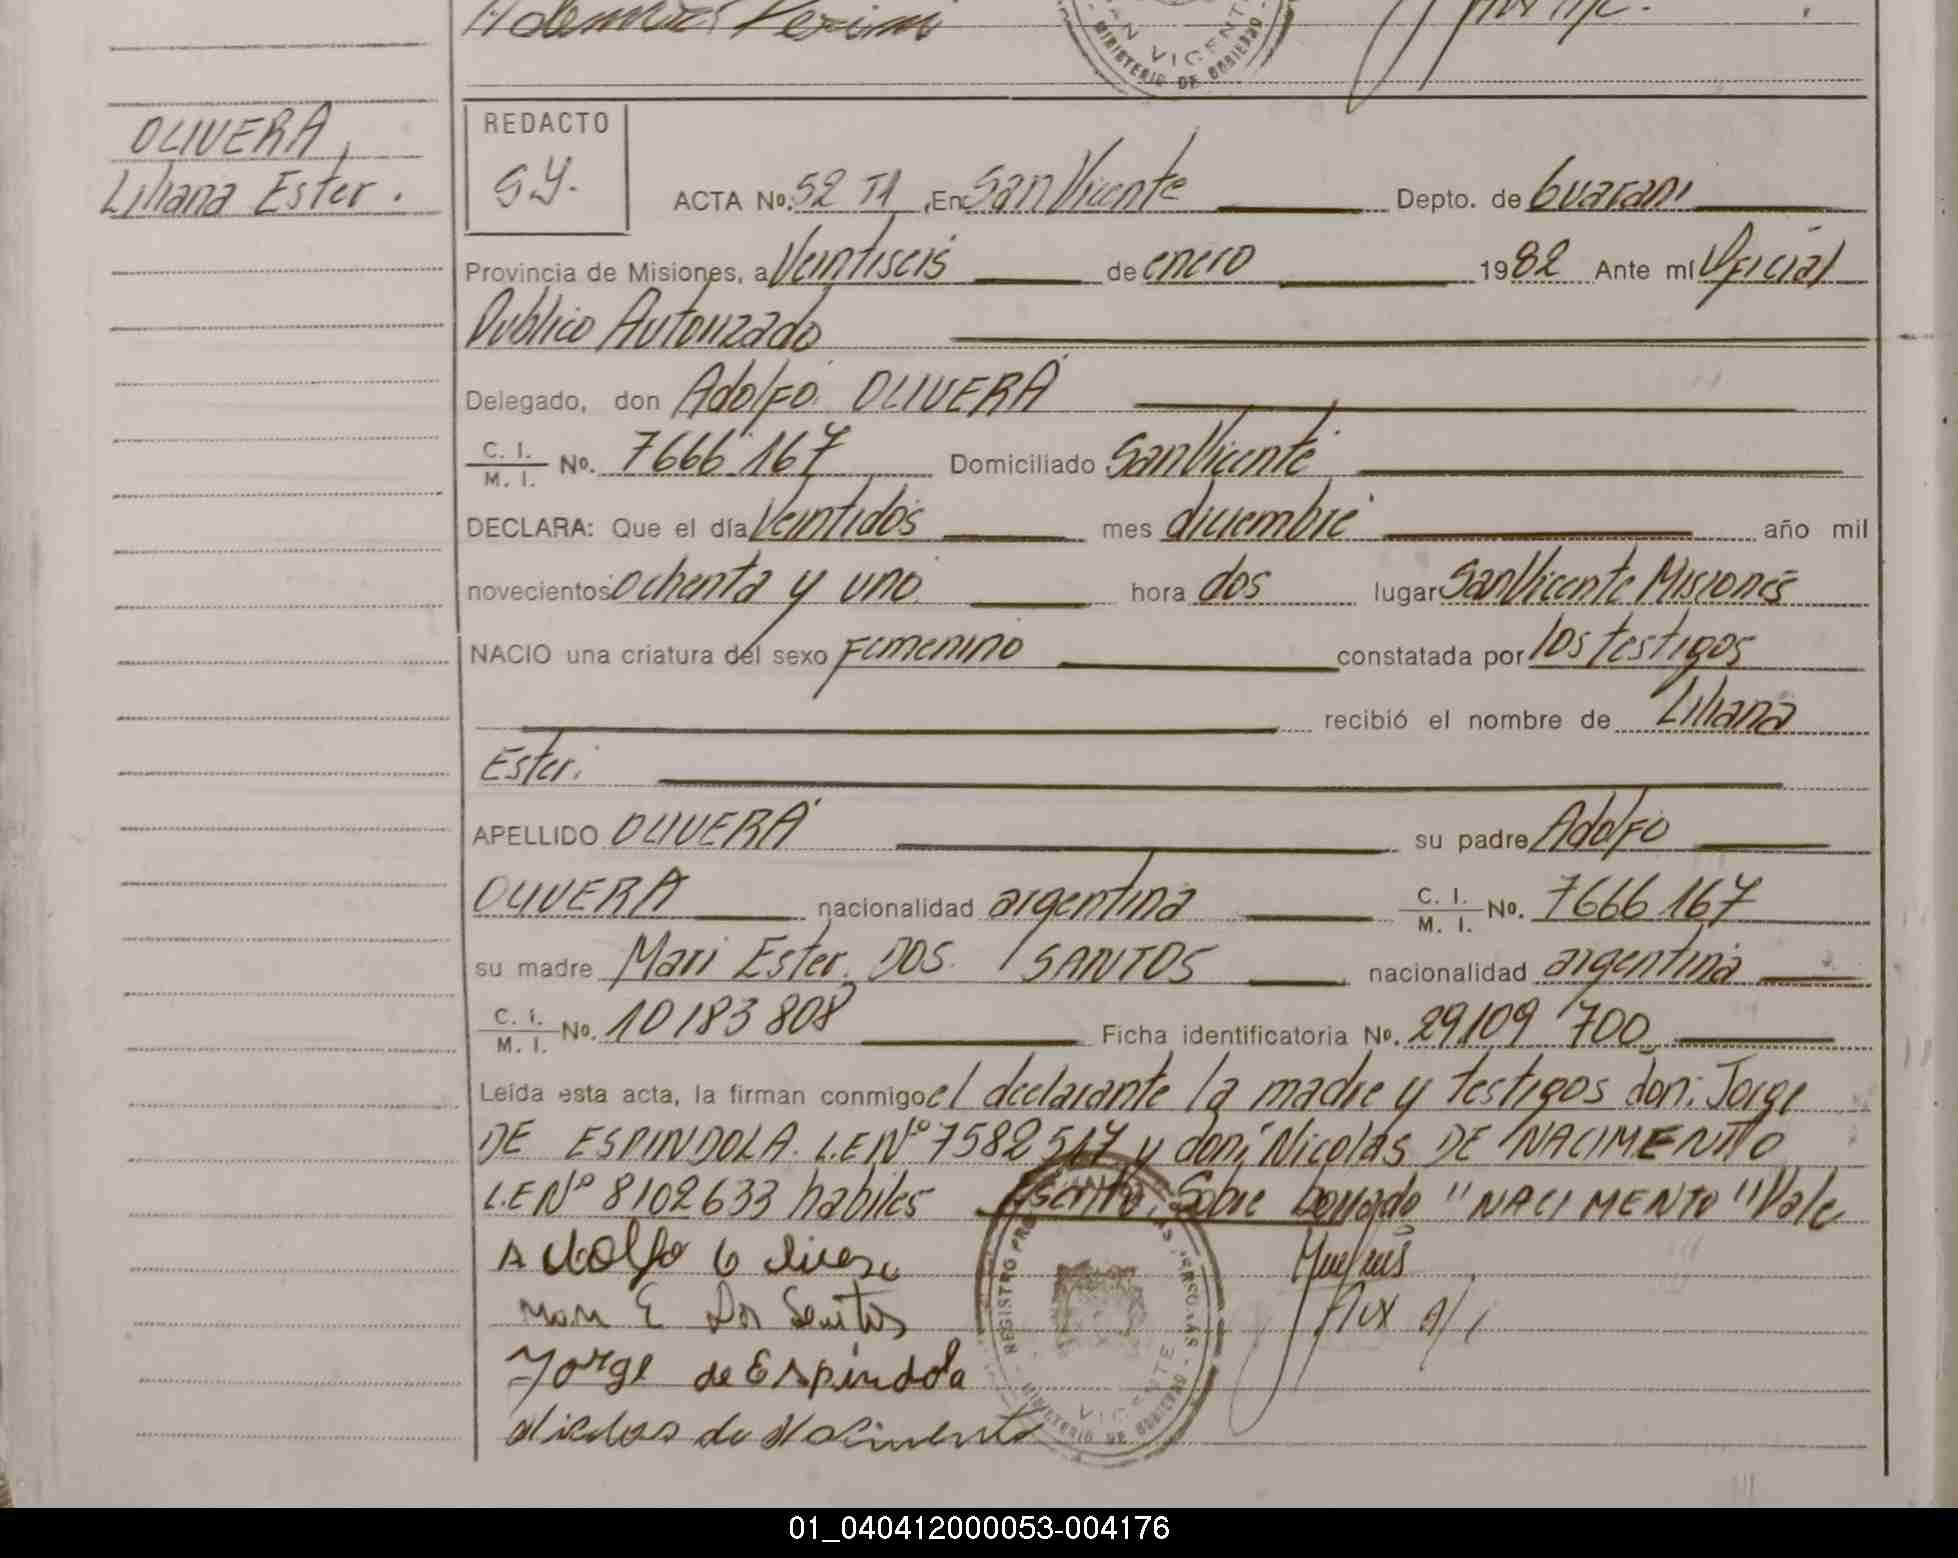 SAN VICENTE
MINISTERIO DE GOBIERNO
OLIVERA,
Liliana Ester.
REDACTO
G.Y.
ACTA No. 52 T1, En San Vicente Depto. de Guarani
Provincia de Misiones, a Veintiseis de enero 1982 Ante mí Oficial
Publico Autorizado
Delegado, don Adolfo OLIVERA
C. I. / M. I. No. 7666 167 Domiciliado San Vicente
DECLARA: Que el día Veintidos mes diciembre año mil
novecientos ochenta y uno hora dos lugar San Vicente Misiones
NACIO una criatura del sexo Femenino constatada por los testigos
recibió el nombre de Liliana
Ester.
APELLIDO OLIVERA su padre Adolfo
OLIVERA nacionalidad argentina C. I. / M. I. No. 7666 167
su madre Mari Ester DOS SANTOS nacionalidad argentina
C. I. / M. I. No. 10183808 Ficha identificatoria No. 29.109 700
Leída esta acta, la firman conmigo el declarante la madre y testigos don: Jorge
DE ESPINDOLA. L.E Nº 7582517 y don: Nicolas DE NACIMENTO
L.E Nº 8102633 habiles Escrito Sobre borrado "NACIMENTO" Vale
Adolfo Olivera
Mari E Dos Santos
Jorge de Espindola
Nicolas de Nacimento
REGISTRO
PERSONAS
VICENTE
MINISTERIO DE GOBIERNO
01_040412000053-004176